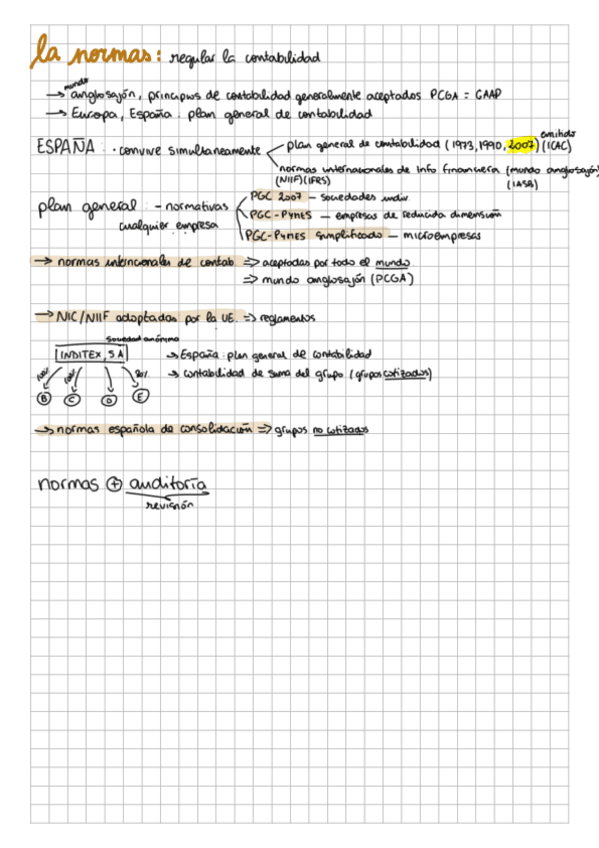 la normas: regular la contabilidad
mundo
→ anglosajón, principios de contabilidad generalmente aceptados PCGA = GAAP
→ Europa, España: plan general de contabilidad
ESPAÑA: · convive simultaneamente
plan general de contabilidad (1973, 1990, 2007) (ICAC)
emitido
normas internacionales de info financiera (mundo anglosajón)
(NIIF)(IFRS) (IASB)
plan general: - normativas
cualquier empresa
PGC 2007 - sociedades indiv
PGC-PYMES - empresas de reducida dimensión
PGC-PYMES simplificado - microempresas
→ normas intencionales de contab ⇒ aceptadas por todo el mundo
⇒ mundo anglosajón (PCGA)
→ NIC/NIIF adoptadas por la UE. ⇒ reglamentos
sociedad anónima
INDITEX, SA
→ España: plan general de contabilidad
→ contabilidad de suma del grupo (grupos cotizados)
B C D E
→ normas española de consolidación ⇒ grupos no cotizados
normas + auditoría
revisión